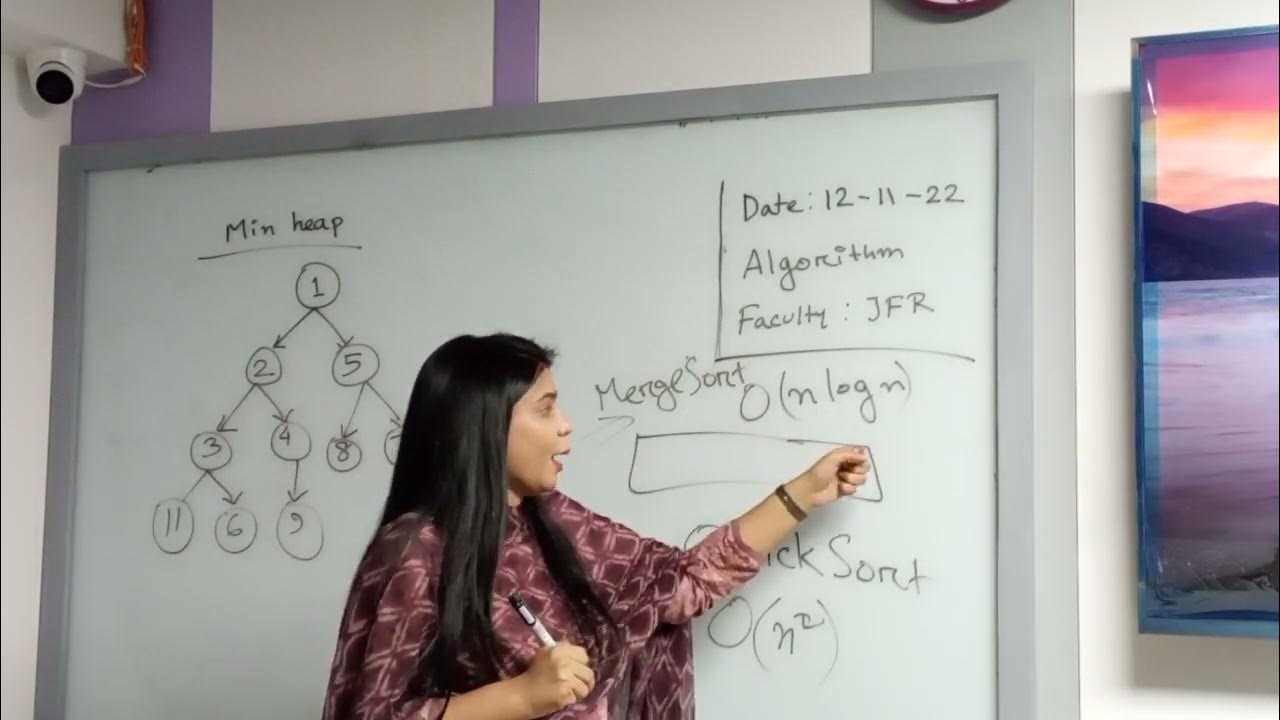 Min heap
1
2 5
3 4 8
11 6 9
Date: 12-11-22
Algorithm
Faculty: JFR
MergeSort O(n log n)
Sort
O(n²)